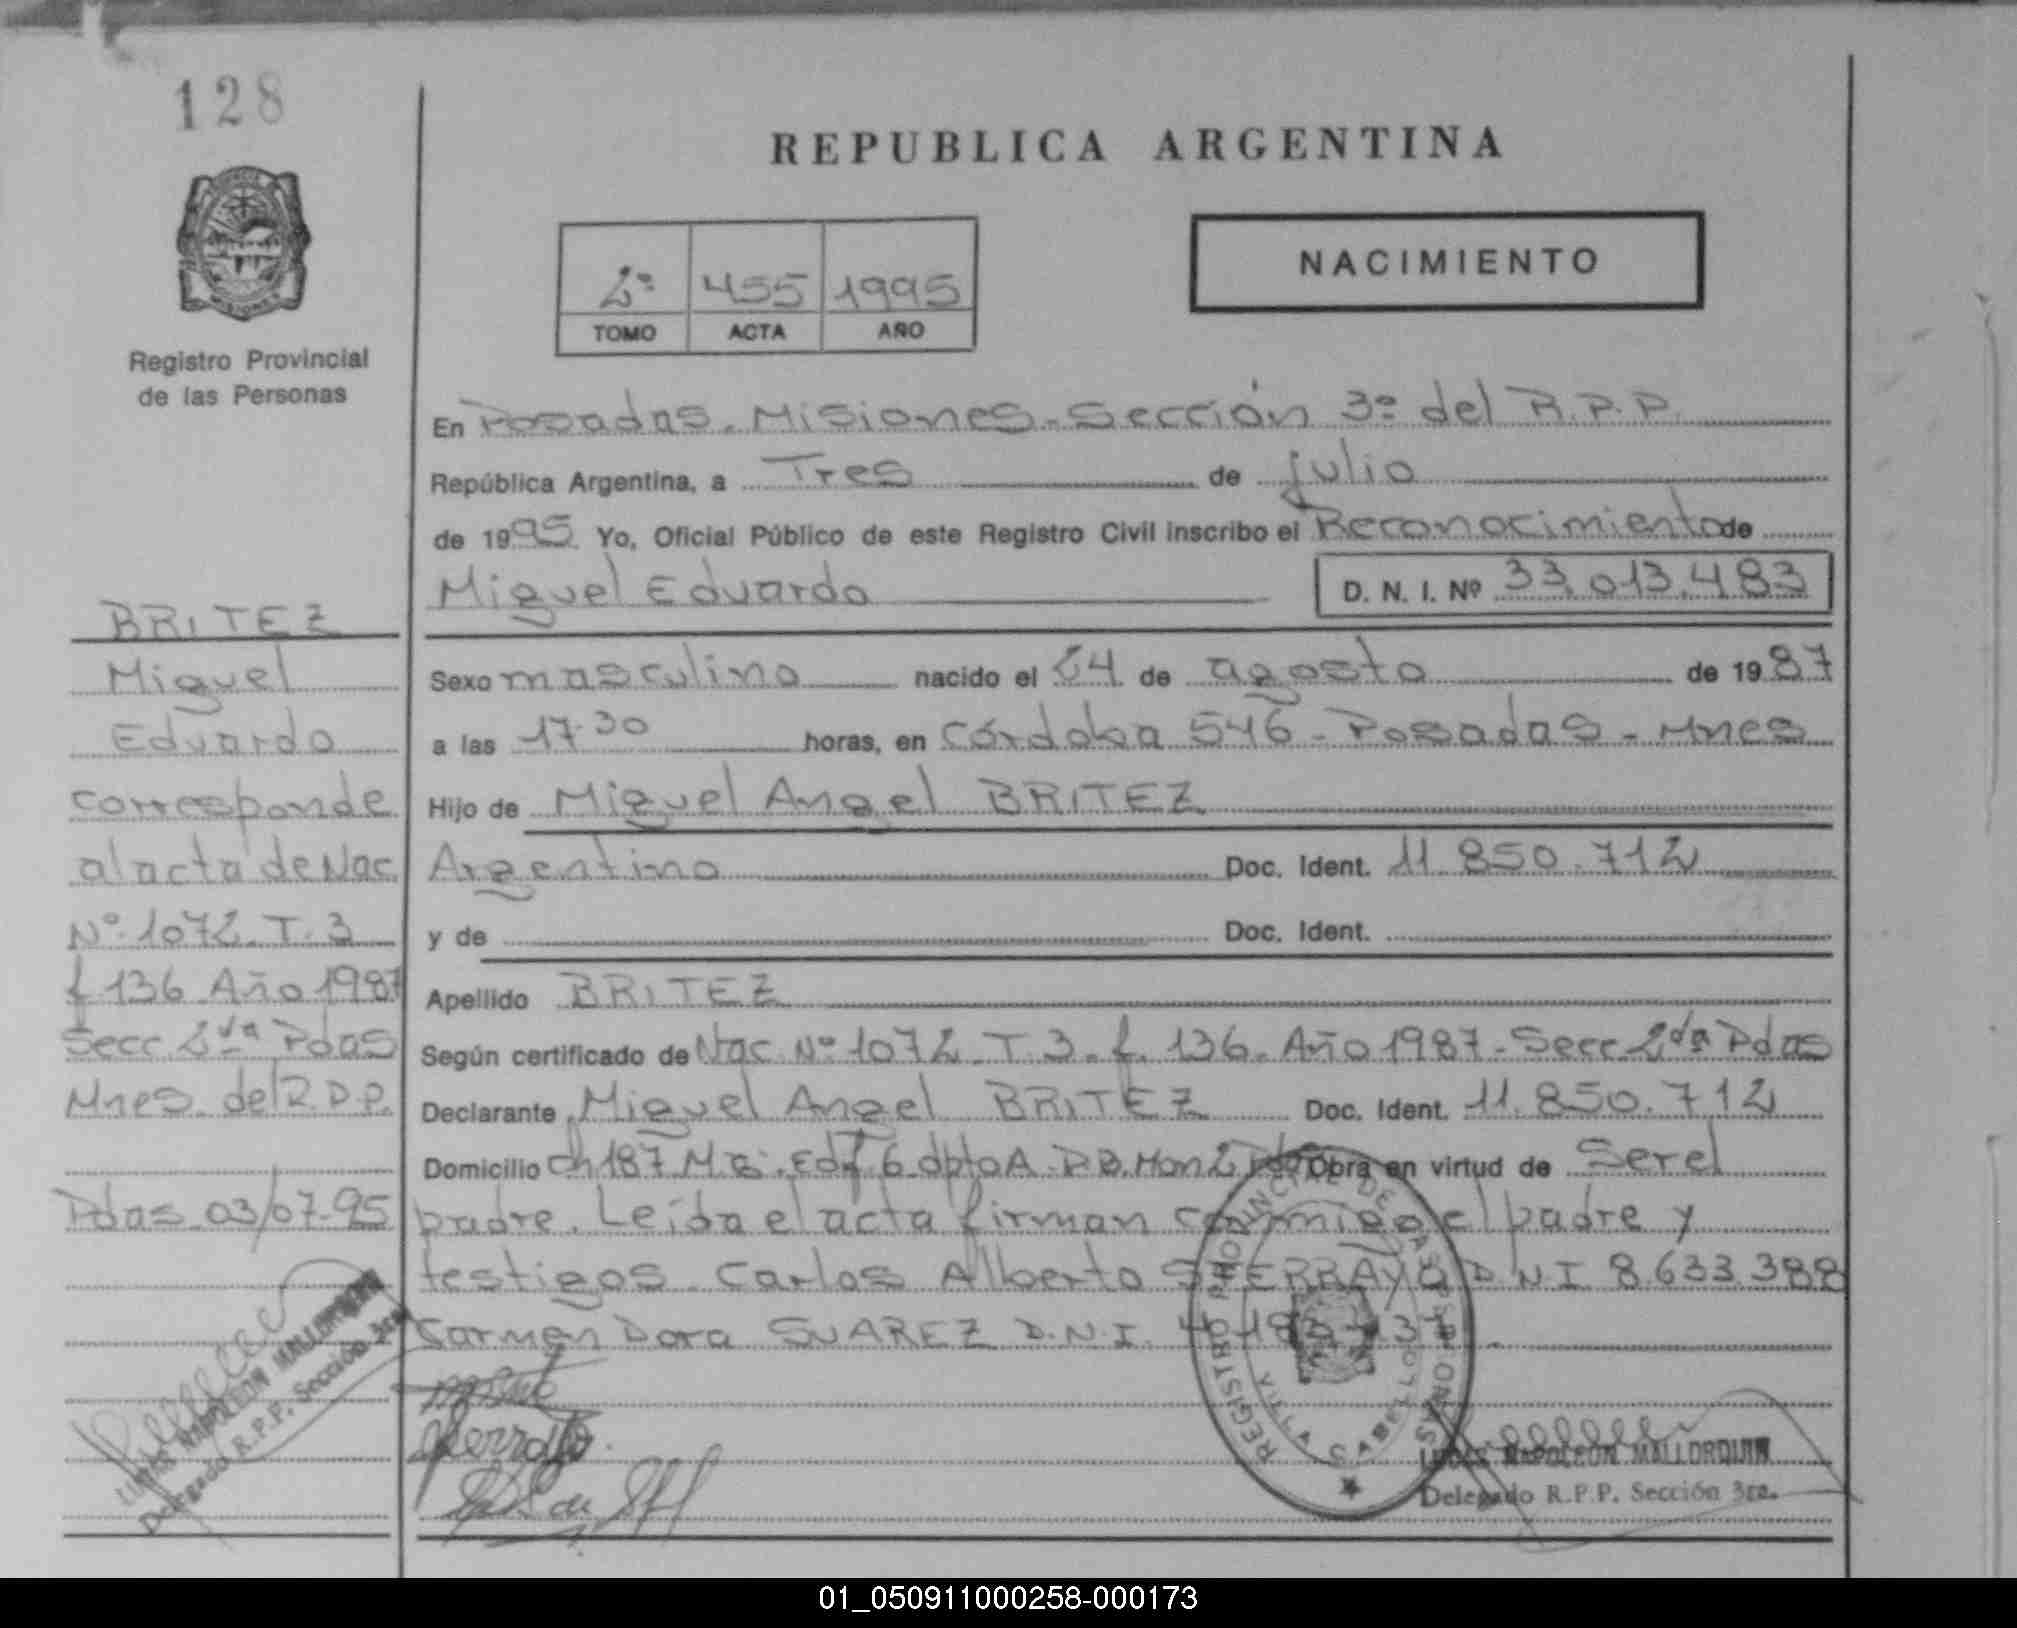 128
REPUBLICA ARGENTINA
NACIMIENTO
2º 455 1995
TOMO ACTA AÑO
Registro Provincial
de las Personas
En Posadas. Misiones. Sección 3º del R.P.P.
República Argentina, a Tres de julio
de 1995 Yo, Oficial Público de este Registro Civil inscribo el Reconocimiento de
Miguel Eduardo D. N. I. Nº 33.013.483
Sexo masculino nacido el 24 de agosto de 1987
a las 17.30 horas, en Córdoba 546 - Posadas - Mnes
Hijo de Miguel Angel BRITEZ
Argentino Doc. Ident. 11.850.712
y de Doc. Ident.
Apellido BRITEZ
Según certificado de Nac. Nº 1072. T. 3. f. 136. Año 1987 - Secc 2da Pdas
Declarante Miguel Angel BRITEZ Doc. Ident. 11.850.712
Domicilio Ch 187 Edf. 6 dpto A Obra en virtud de Ser el
padre. Leída el acta firman conmigo el padre y
testigos. Carlos Alberto D.N.I 8.633.388
Carmen Dora SUAREZ D.N.I.
BRITEZ
Miguel
Eduardo
corresponde
al acta de Nac.
Nº 1072. T. 3
f 136 Año 1987
Secc 2da Pdas
Mnes. del R.P.P.
Pdas 03/07-95
LUCAS NAPOLEON MALLORQUIN
Delegado R.P.P. Sección 3ra.
REGISTRO PROVINCIAL DE LAS PERSONAS
VILLA CABELLO
LUCAS NAPOLEON MALLORQUIN
Delegado R.P.P. Sección 3ra.
01_050911000258-000173